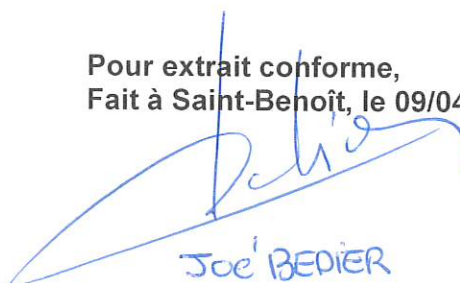 Pour extrait conforme,
Fait à Saint-Benoît, le 09/04
Joé BEDIER